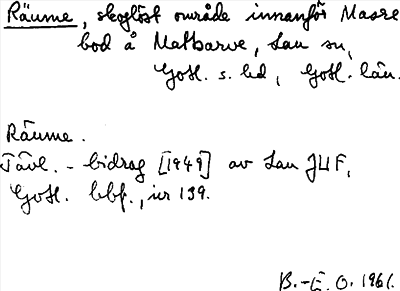 Räume, skoglöst område innanför Masse
bod å Matbarve, Lau sn,
Gotl. s. hd, Gotl. län.
Räume.
Tävl. - bidrag [1949] av Lau JUF,
Gotl. bbf., nr 139.
B.-E. O. 1961.